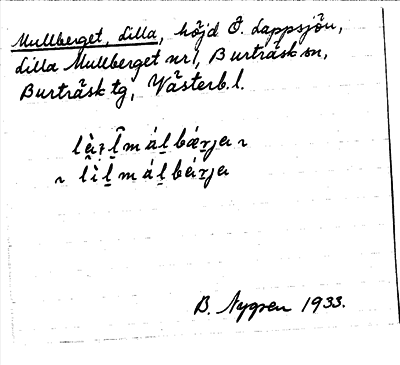 Mullberget, Lilla, höjd Ö. Lappsjön,
Lilla Mullberget nr 1, Burträsk sn,
Burträsk tg, Västerb. l.
máḻbæ̀ṟja ~
~ lìḻ máḻbáṟja
B. Nygren 1933.